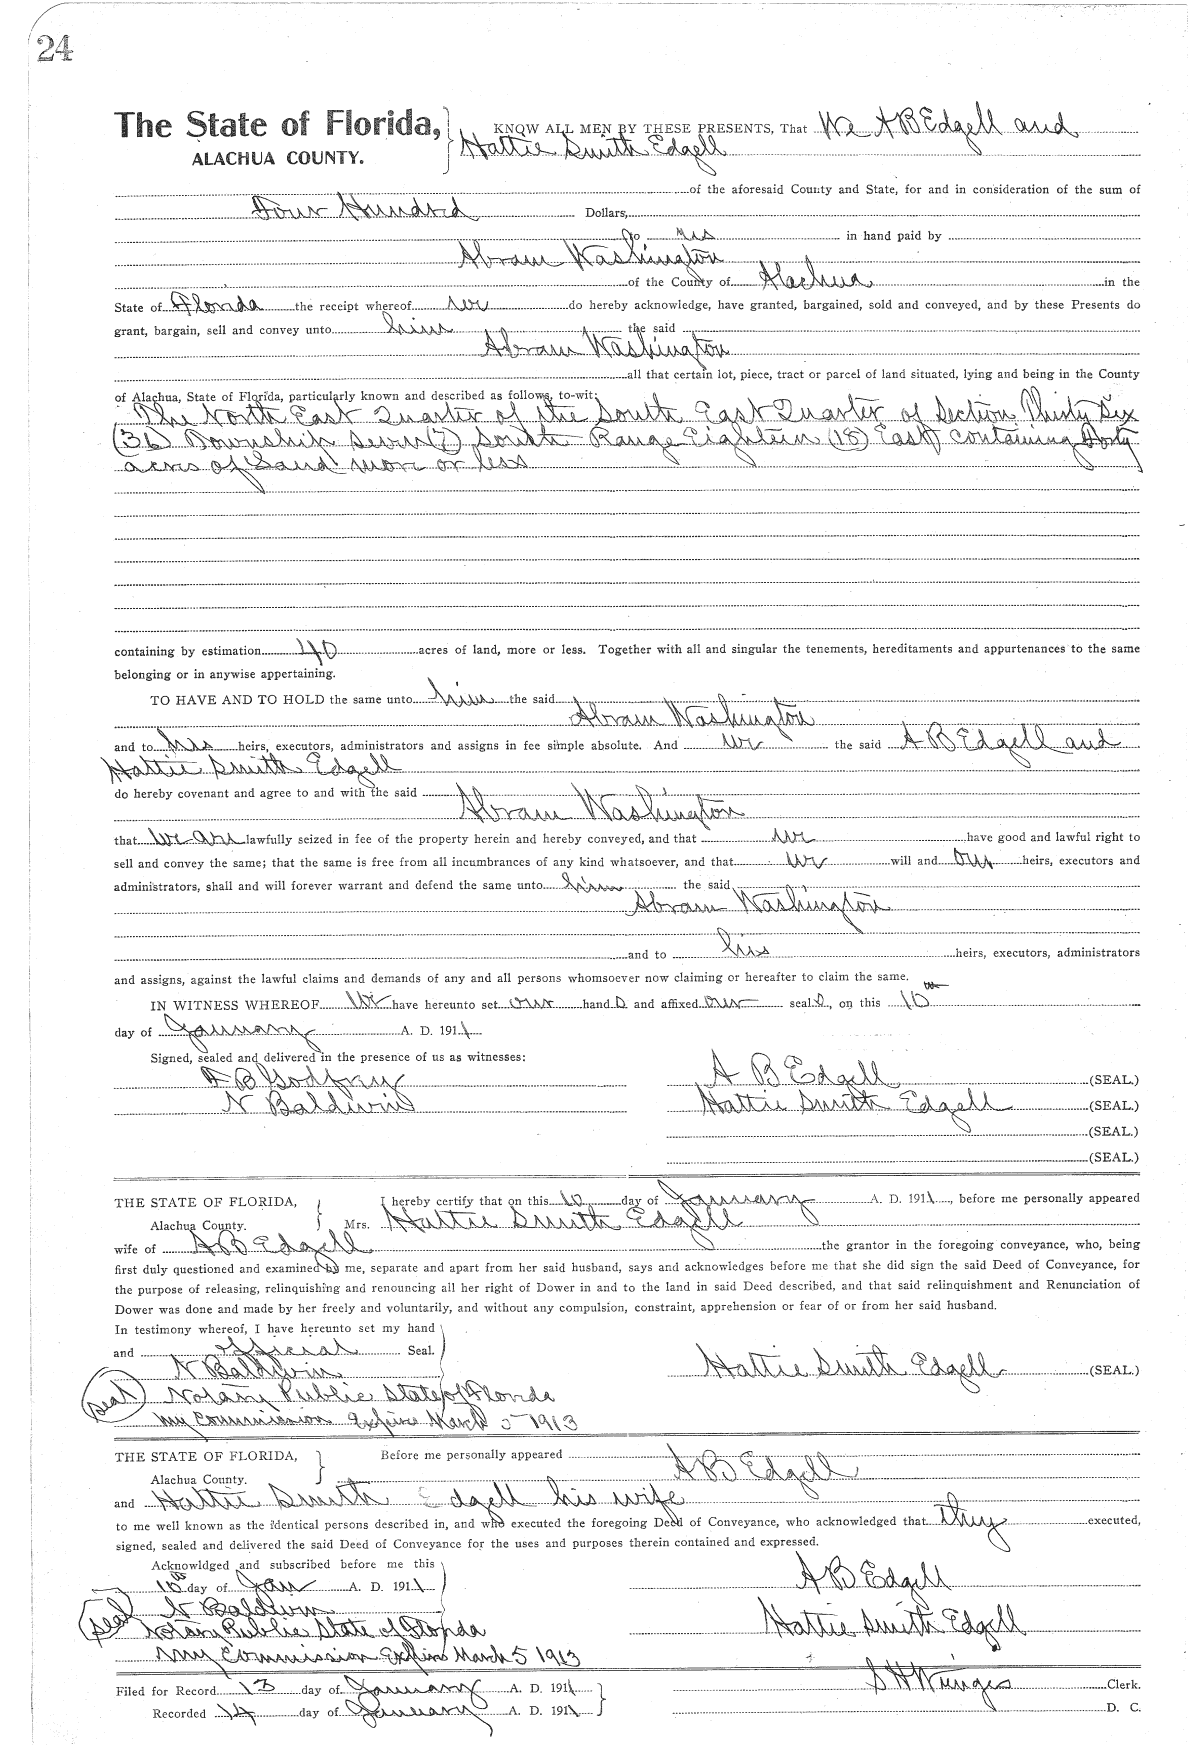 24
The State of Florida, KNOW ALL MEN BY THESE PRESENTS, That We A B Edgell and
ALACHUA COUNTY. Hattie Smith Edgell
of the aforesaid County and State, for and in consideration of the sum of
Four Hundred Dollars,
to us in hand paid by
Abram Washington
of the County of Alachua in the
State of Florida the receipt whereof we do hereby acknowledge, have granted, bargained, sold and conveyed, and by these Presents do
grant, bargain, sell and convey unto him the said
Abram Washington
all that certain lot, piece, tract or parcel of land situated, lying and being in the County
of Alachua, State of Florida, particularly known and described as follows, to-wit:
The North East Quarter of the South East Quarter of Section Thirty Six
(36) Township Seven (7) South Range Eighteen (18) East containing Forty
acres of Land more or less
containing by estimation 40 acres of land, more or less. Together with all and singular the tenements, hereditaments and appurtenances to the same
belonging or in anywise appertaining.
TO HAVE AND TO HOLD the same unto him the said
Abram Washington
and to his heirs, executors, administrators and assigns in fee simple absolute. And we the said A B Edgell and
Hattie Smith Edgell
do hereby covenant and agree to and with the said
Abram Washington
that we are lawfully seized in fee of the property herein and hereby conveyed, and that we have good and lawful right to
sell and convey the same; that the same is free from all incumbrances of any kind whatsoever, and that we will and our heirs, executors and
administrators, shall and will forever warrant and defend the same unto him the said
Abram Washington
and to his heirs, executors, administrators
and assigns, against the lawful claims and demands of any and all persons whomsoever now claiming or hereafter to claim the same.
IN WITNESS WHEREOF We have hereunto set our hand s and affixed our seal s, on this 10th
day of January A. D. 1911
Signed, sealed and delivered in the presence of us as witnesses:
A B Godfrey A B Edgell (SEAL.)
N Baldwin Hattie Smith Edgell (SEAL.)
(SEAL.)
(SEAL.)
THE STATE OF FLORIDA, I hereby certify that on this 10 day of January A. D. 1911, before me personally appeared
Alachua County. Mrs. Hattie Smith Edgell
wife of A B Edgell the grantor in the foregoing conveyance, who, being
first duly questioned and examined by me, separate and apart from her said husband, says and acknowledges before me that she did sign the said Deed of Conveyance, for
the purpose of releasing, relinquishing and renouncing all her right of Dower in and to the land in said Deed described, and that said relinquishment and Renunciation of
Dower was done and made by her freely and voluntarily, and without any compulsion, constraint, apprehension or fear of or from her said husband.
In testimony whereof, I have hereunto set my hand
and official Seal.
N Baldwin Hattie Smith Edgell (SEAL)
Seal Notary Public State of Florida
My Commission Expire March 5 1913
THE STATE OF FLORIDA, Before me personally appeared
Alachua County. A B Edgell
and Hattie Smith Edgell his wife
to me well known as the identical persons described in, and who executed the foregoing Deed of Conveyance, who acknowledged that they executed,
signed, sealed and delivered the said Deed of Conveyance for the uses and purposes therein contained and expressed.
Acknowldged and subscribed before me this A B Edgell
10th day of Jan A. D. 1911
N Baldwin Hattie Smith Edgell
Seal Notary Public State of Florida
My Commission Expires March 5 1913
Filed for Record 13 day of January A. D. 1911 S H Wienges Clerk.
Recorded 14 day of January A. D. 1911 D. C.